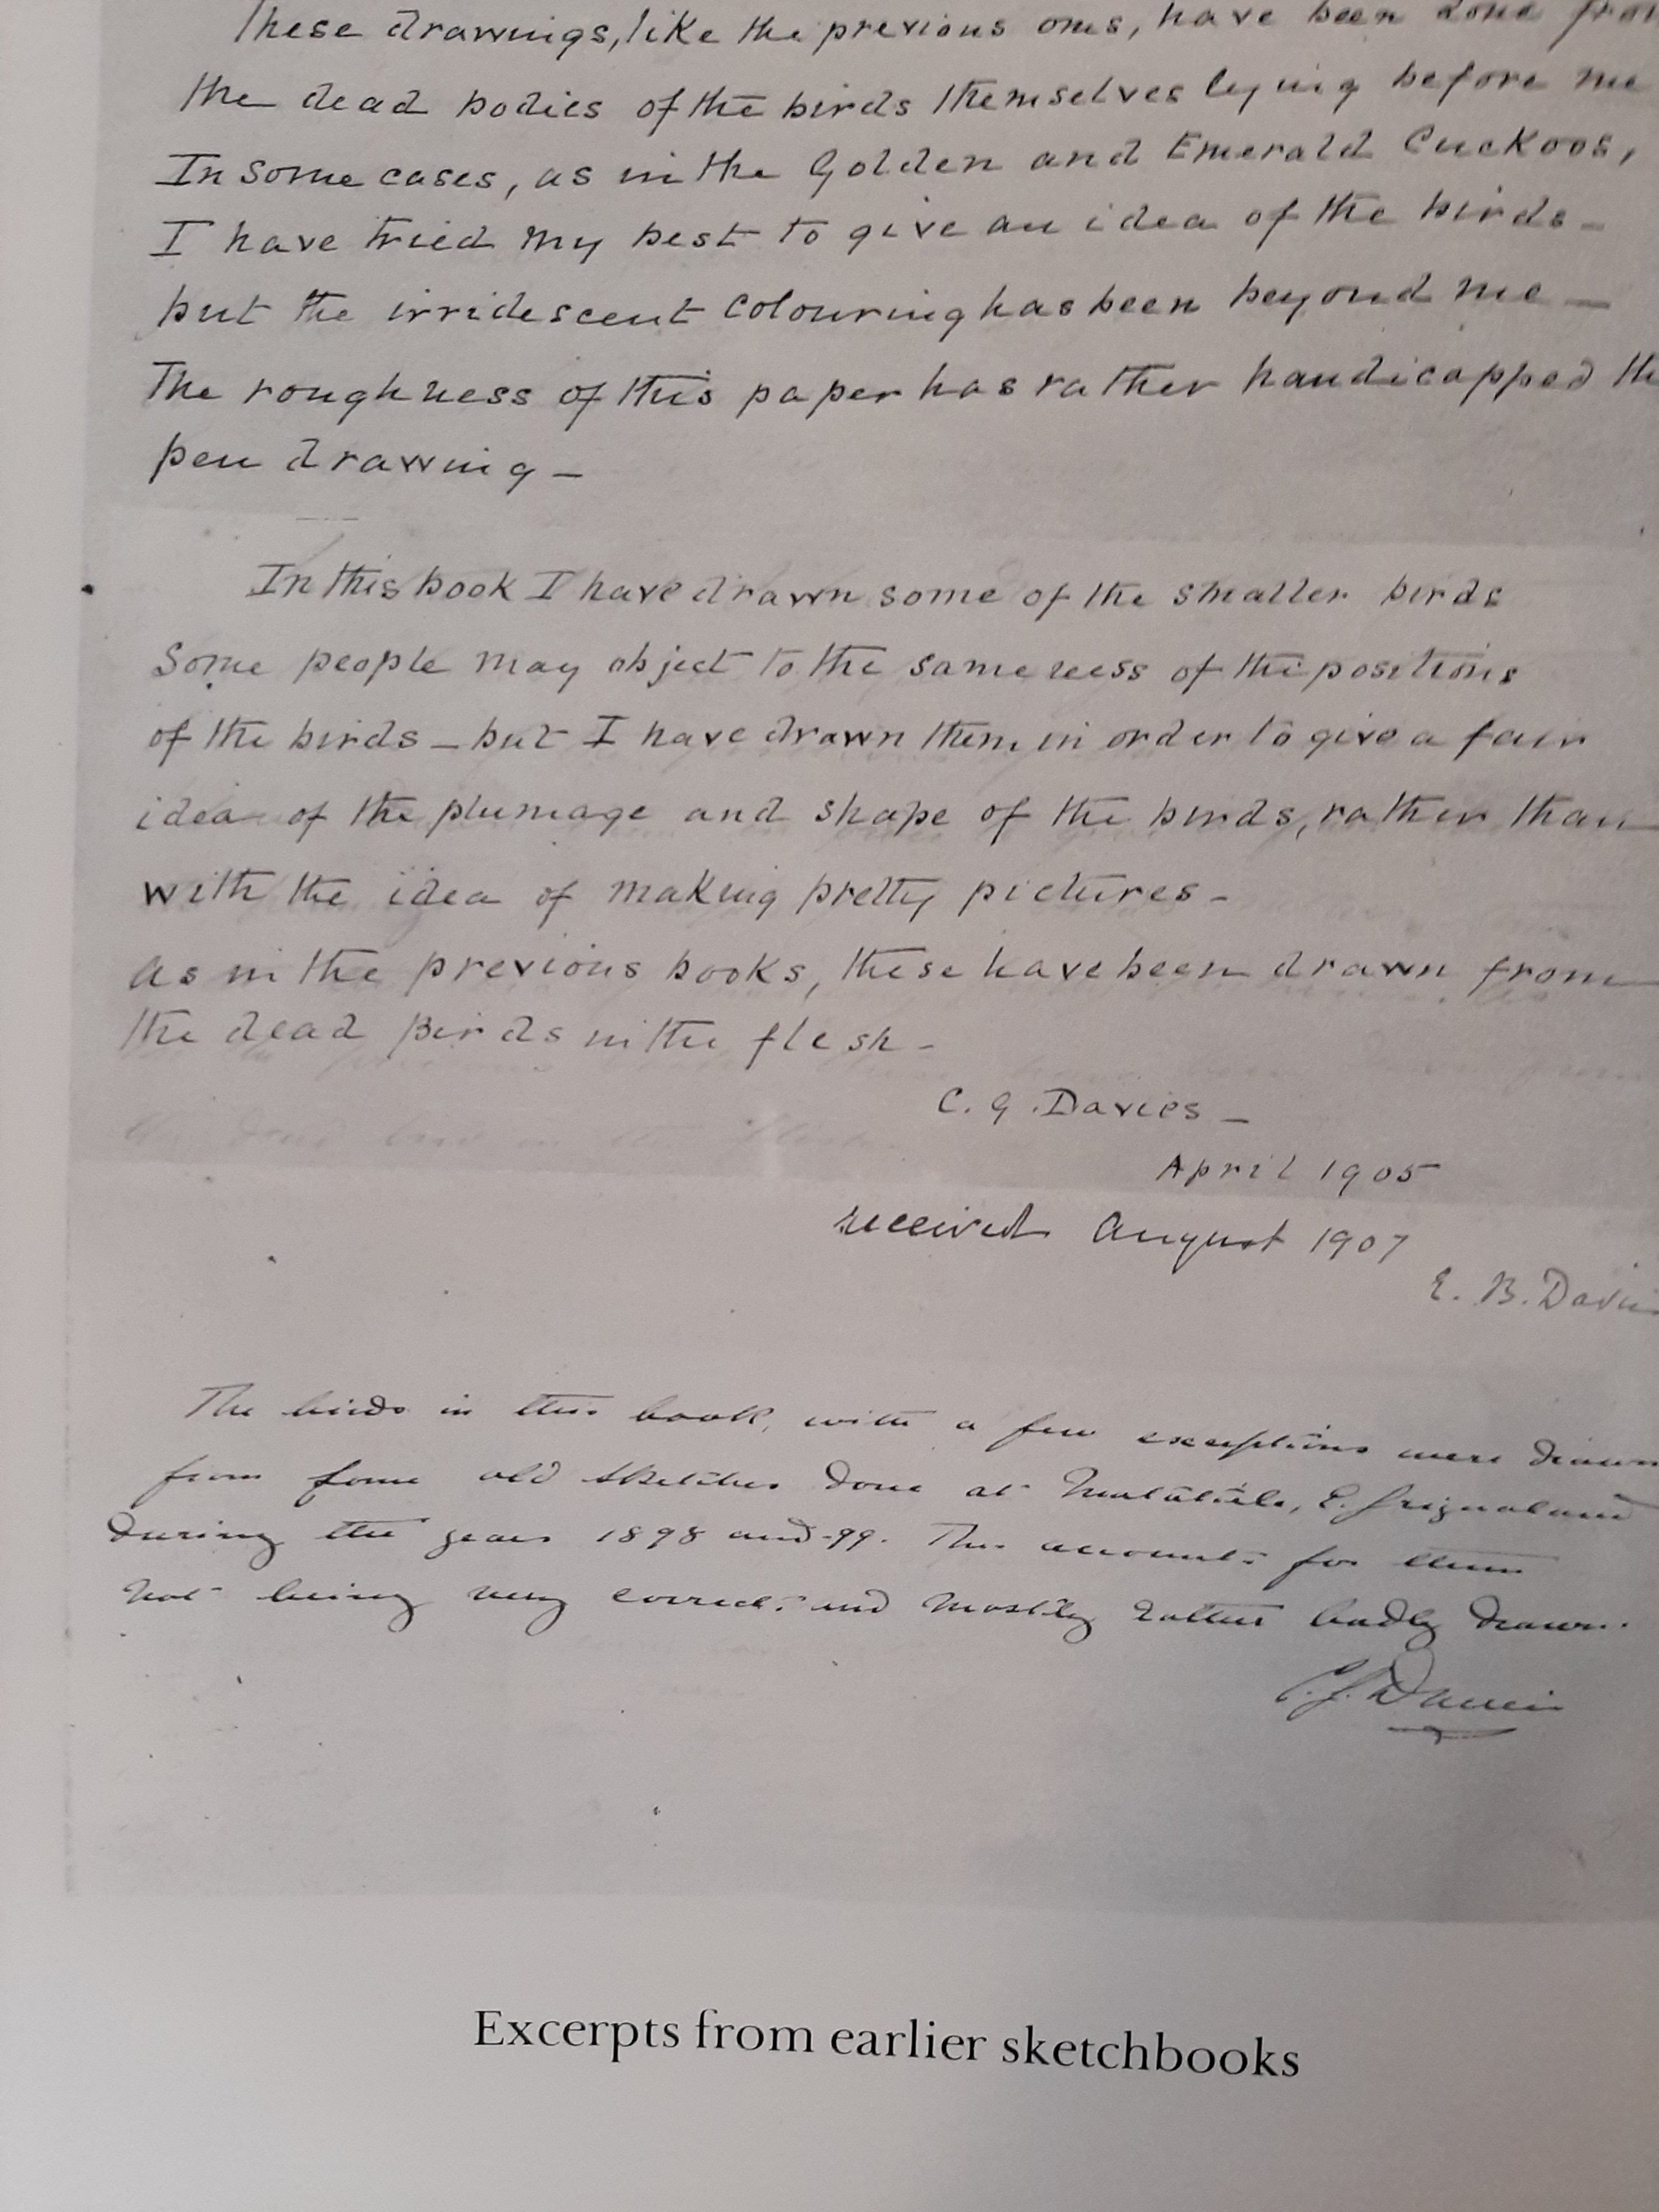 These drawings, like the previous ones, have been done from
the dead bodies of the birds themselves lying before me
In some cases, as in the Golden and Emerald Cuckoos,
I have tried my best to give an idea of the birds –
but the irridescent colouring has been beyond me –
The roughness of this paper has rather handicapped th
pen drawing –
In this book I have drawn some of the smaller birds
Some people may object to the sameness of the positions
of the birds – but I have drawn them in order to give a fair
idea of the plumage and shape of the birds, rather than
with the idea of making pretty pictures –
As in the previous books, these have been drawn from
the dead Birds in the flesh –
C. G. Davies –
April 1905
received August 1907
E. B. Davie
The birds in this book, with a few exceptions were drawn
from some old sketches done at Matatiele, E. Griqualand
during the years 1898 and -99. This accounts for them
not being very correct and mostly rather badly drawn.
C. G. Davies
Excerpts from earlier sketchbooks